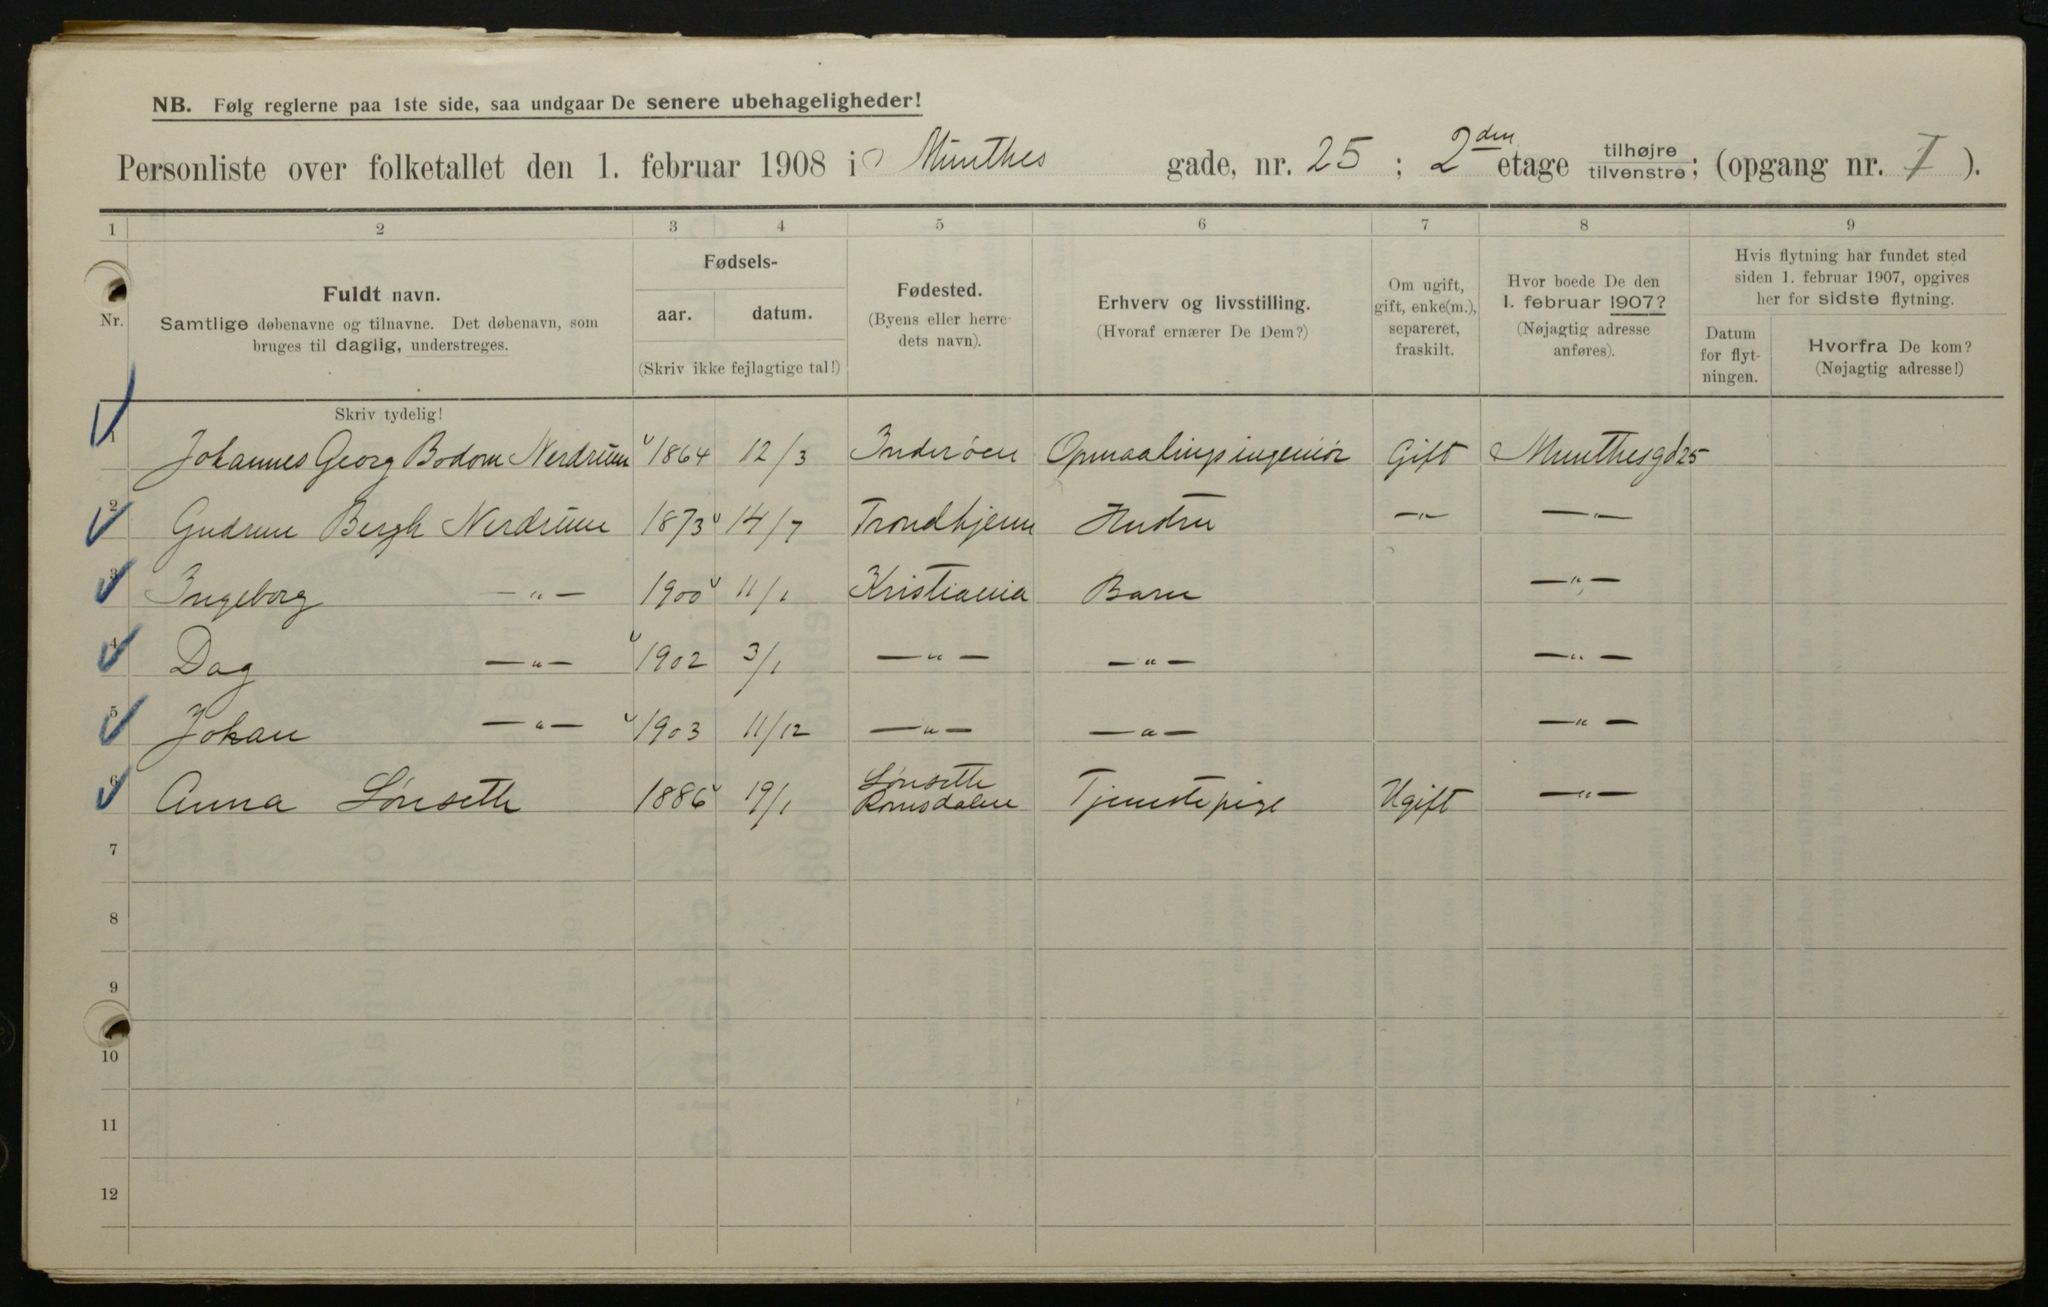 NB. Følg reglerne paa 1ste side, saa undgaar De senere ubehageligheder!
Personliste over folketallet den 1. februar 1908 i Munthes gade, nr. 25 ; 2den etage tilhøjre/tilvenstre; (opgang nr. I ).
1 2 3 4 5 6 7 8 9
Nr.
Fuldt navn.
Samtlige døbenavne og tilnavne. Det døbenavn, som
bruges til daglig, understreges.
Skriv tydelig!
Fødsels-
aar. datum.
(Skriv ikke fejlagtige tal!)
Fødested.
(Byens eller herre-
dets navn).
Erhverv og livsstilling.
(Hvoraf ernærer De Dem?)
Om ugift,
gift, enke(m.),
separeret,
fraskilt.
Hvor boede De den
1. februar 1907?
(Nøjagtig adresse
anføres).
Hvis flytning har fundet sted
siden 1. februar 1907, opgives
her for sidste flytning.
Datum
for flyt-
ningen.
Hvorfra De kom?
(Nøjagtig adresse!)
1 Johannes Georg Bodom Nerdrum 1864 12/3 Inderøen Opmaalingsingeniør Gift Munthesgd 25
2 Gudrun Bergh Nerdrum 1873 14/7 Trondhjem Hustru —"— —"—
3 Ingeborg —"— 1900 11/1 Kristiania Barn —"—
4 Dag —"— 1902 3/1 —"— —"— —"—
5 Johan —"— 1903 11/12 —"— —"— —"—
6 Anna Lønseth 1886 19/1 Lønseth
Romsdalen Tjenestepige Ugift —"—
7
8
9
10
11
12